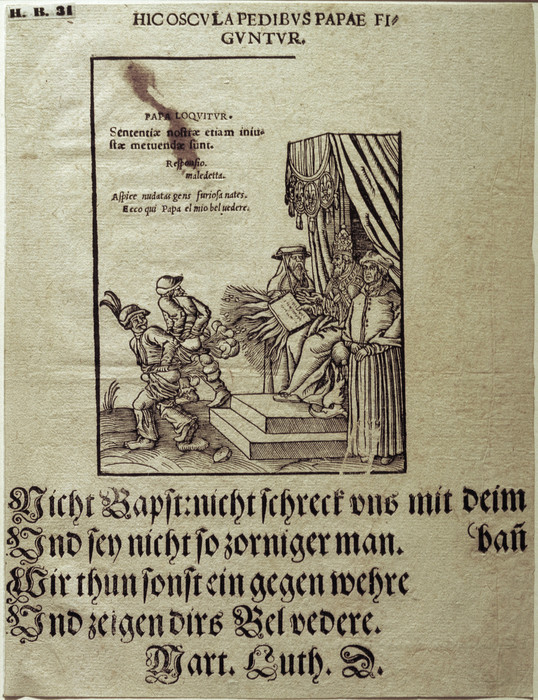 H. B. 31
HIC OSCVLA PEDIBVS PAPAE FI⸗
GVNTVR.
PAPA LOQVITVR.
Sententiæ nostræ etiam iniu⸗
stæ metuendæ sunt.
Responsio.
maledetta.
Aspice nudatas gens furiosa nates.
Ecco qui Papa el mio bel uedere.
Nicht Bapst: nicht schreck vns mit deim
Vnd sey nicht so zorniger man. bañ
Wir thun sonst ein gegen wehre
Vnd zeigen dirs Bel vedere.
Mart. Luth. D.